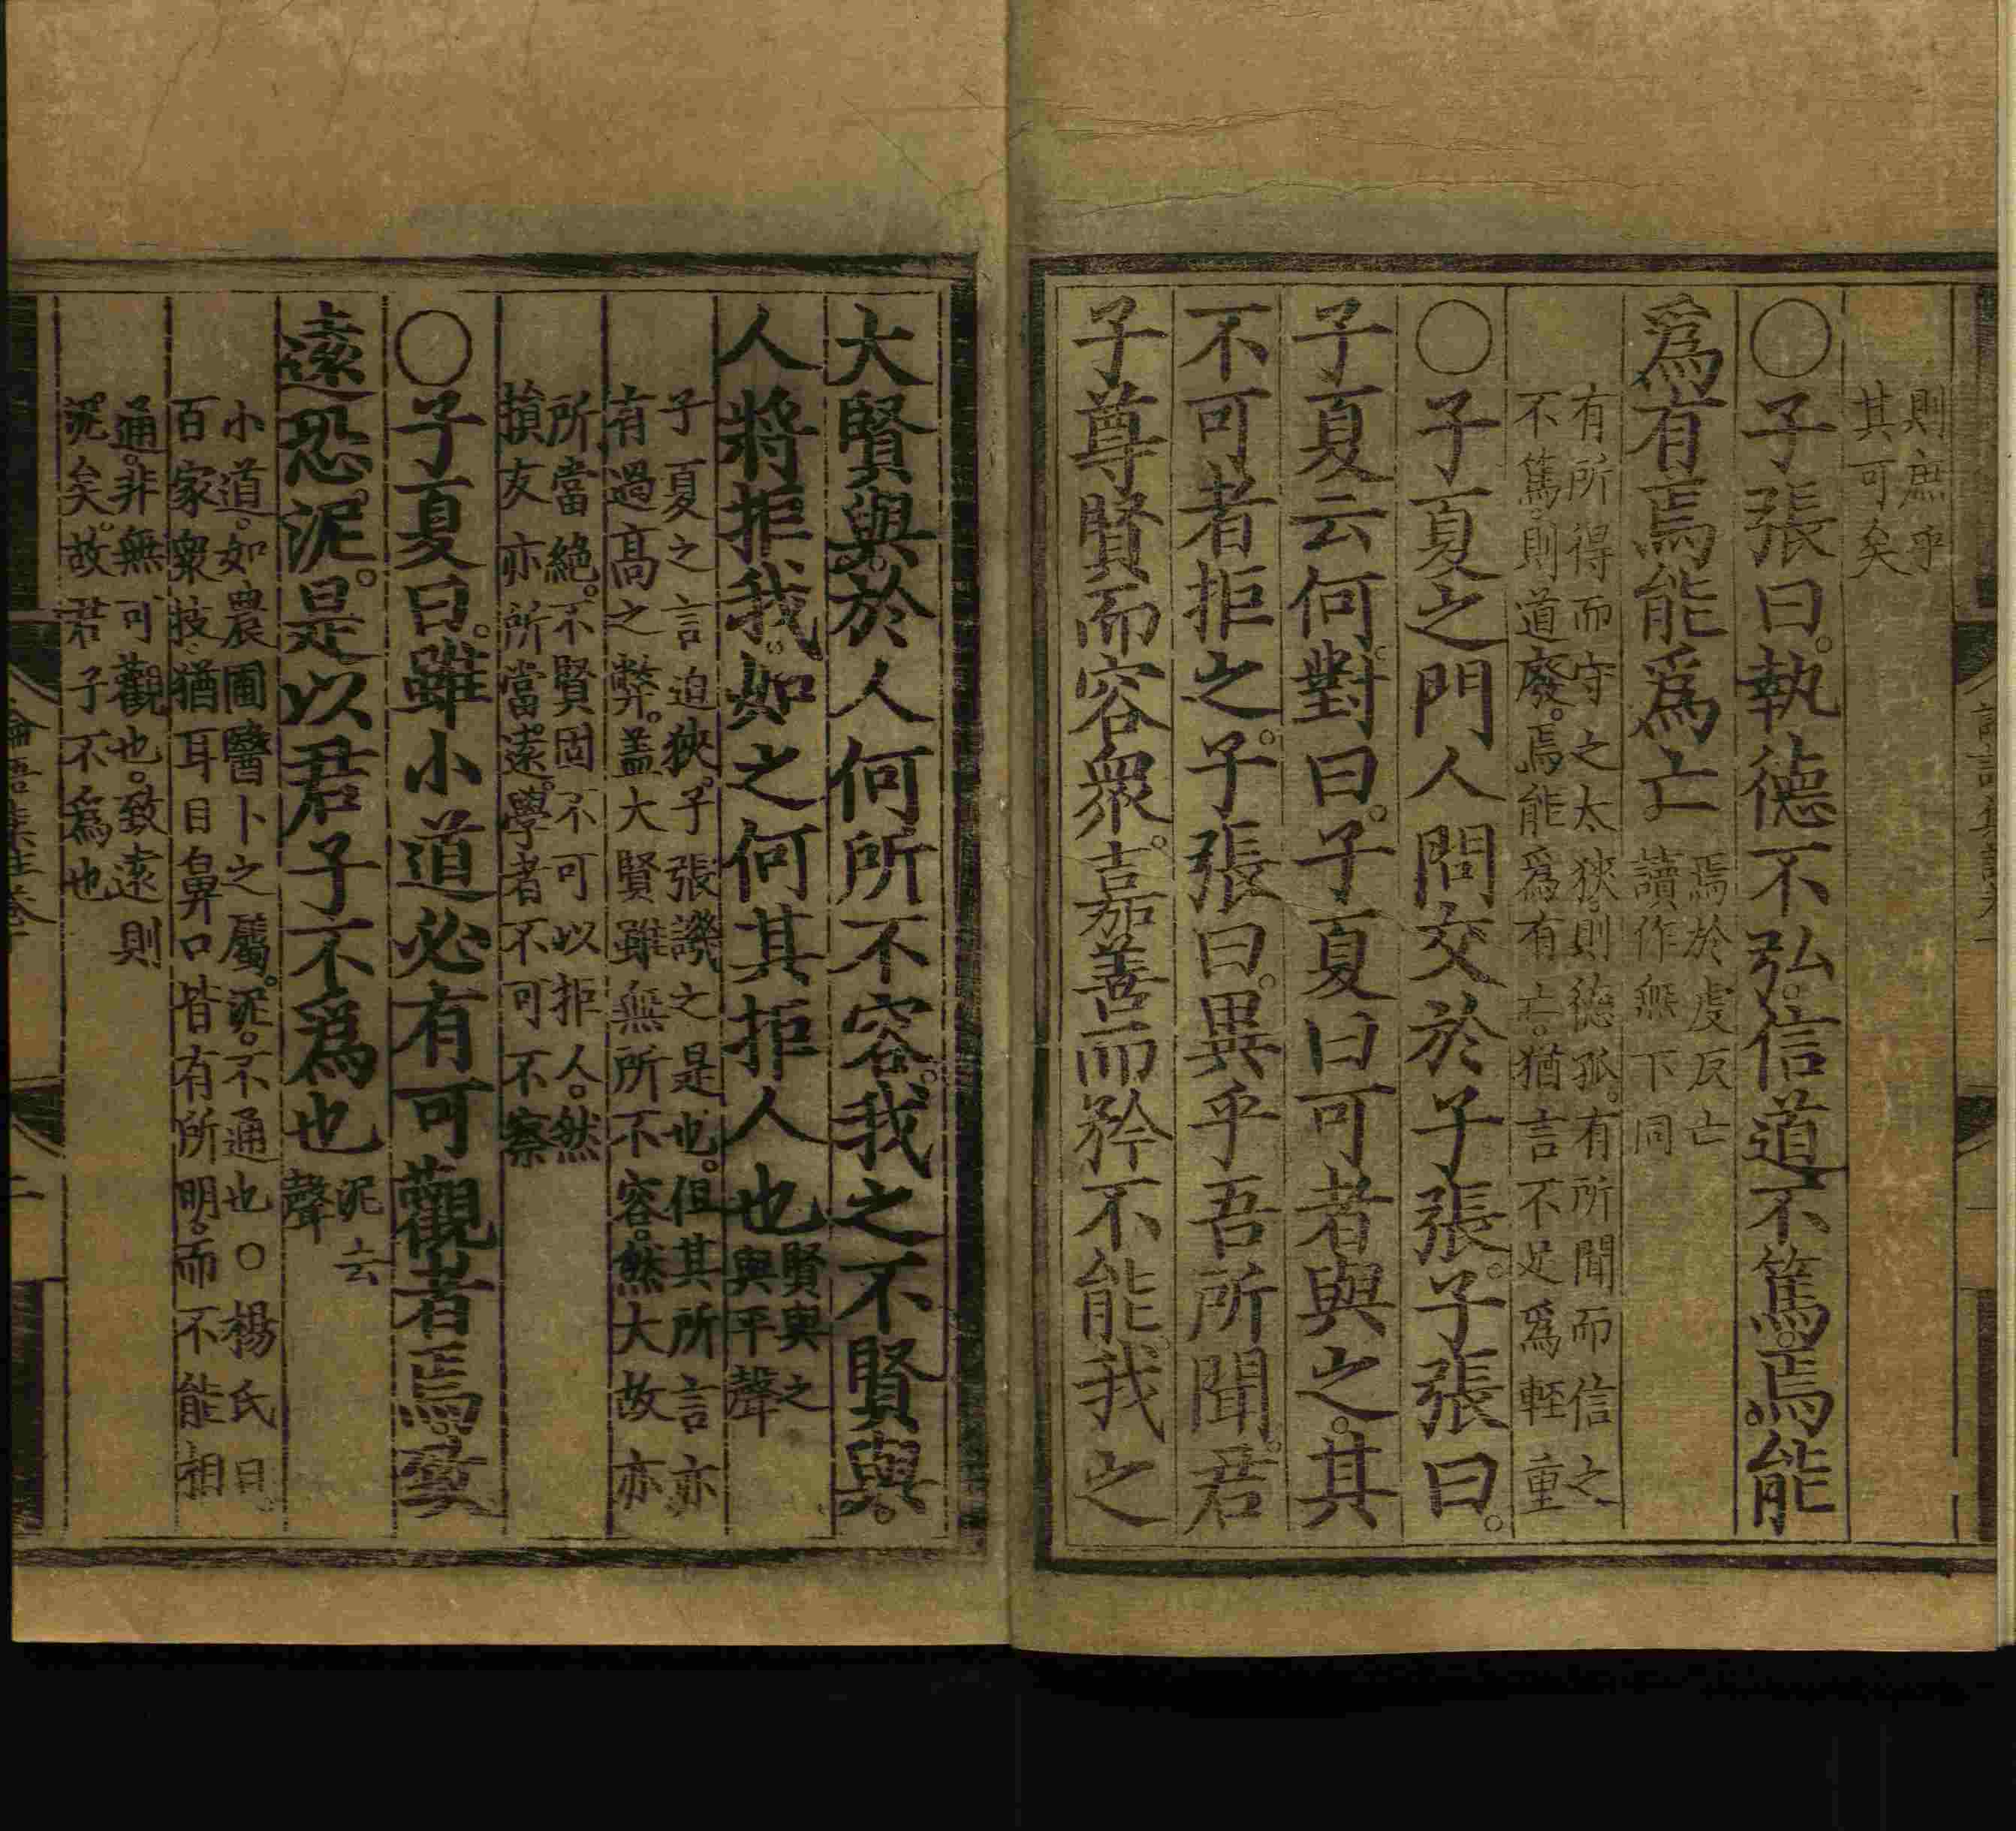 則庶乎
其可矣
○子張曰。執德不弘。信道不篤。焉能
爲有。焉能爲亡
焉於虔反亡
讀作無下同
有所得而守之太狹。則德孤。有所聞而信之
不篤。則道廢。焉能爲有亡。猶言不足爲輕重
○子夏之門人問交於子張。子張曰。
子夏云何。對曰。子夏曰可者與之。其
不可者拒之。子張曰。異乎吾所聞。君
子尊賢而容衆。嘉善而矜不能。我之
大賢與。於人何所不容。我之不賢與。
人將拒我。如之何其拒人也
賢與之
與平聲
子夏之言迫狹。子張譏之是也。但其所言亦
有過高之弊。盖大賢雖無所不容。然大故亦
所當絕。不賢固不可以拒人。然
損友亦所當遠。學者不可不察
○子夏曰。雖小道必有可觀者焉。致
遠恐泥。是以君子不爲也
泥去
聲
小道。如農圃醫卜之屬。泥。不通也○楊氏曰
百家衆技。猶耳目鼻口皆有所明。而不能相
通。非無可觀也。致遠則
泥矣。故君子不爲也
論語集註卷十
二